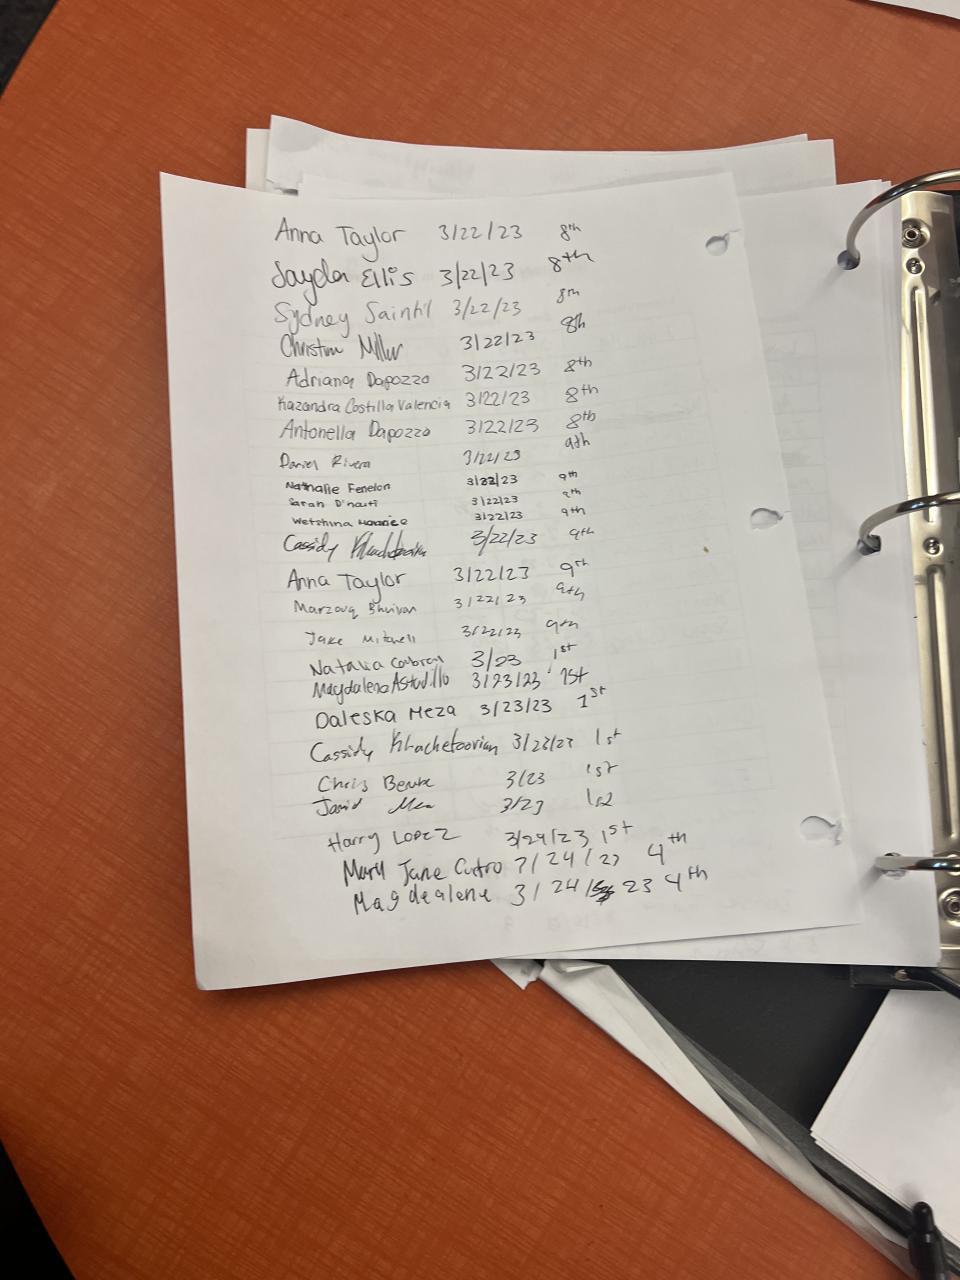 Anna Taylor 3/22/23 8th
Jayda Ellis 3/22/23 8th
Sydney Saintil 3/22/23 8th
Christina Miller 3/22/23 8th
Adriana Dapozzo 3/22/23 8th
Kazandra Costilla Valencia 3/22/23 8th
Antonella Dapozzo 3/22/23 8th
Daniel Rivera 3/22/23 9th
Nathalie Fenelon 3/22/23 9th
Sarah 3/22/23 9th
3/22/23 9th
Cassidy 3/22/23 9th
Anna Taylor 3/22/23 9th
Marzouq 3/22/23 9th
Jake Mitchell 3/22/23 9th
Natalia 3/23 1st
Magdalena Astudillo 3/23/23 1st
Daleska Meza 3/23/23 1st
Cassidy Khachetoorian 3/23/23 1st
Chris 3/23 1st
3/23 1st
Harry Lopez 3/24/23 1st
Mary Jane Castro 3/24/23 4th
Magdealene 3/24/ 23 4th